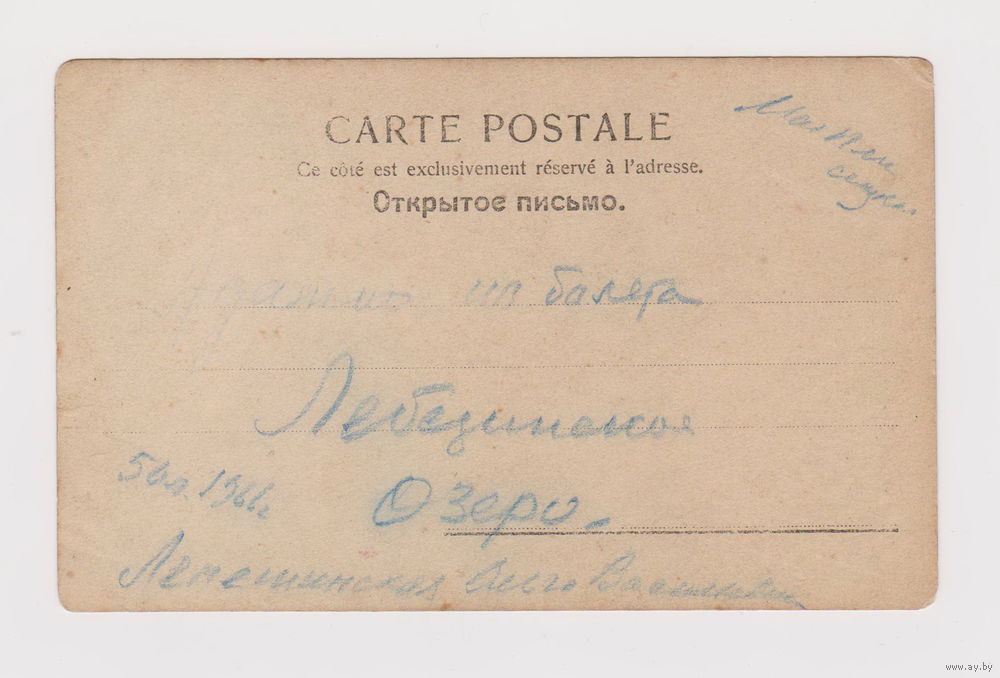 CARTE POSTALE
Ce côté est exclusivement réservé à l'adresse.
Открытое письмо.
из балета
Лебединское
Озеро.
1966г
Лепешинская Ольга Васильевн
www.ay.by